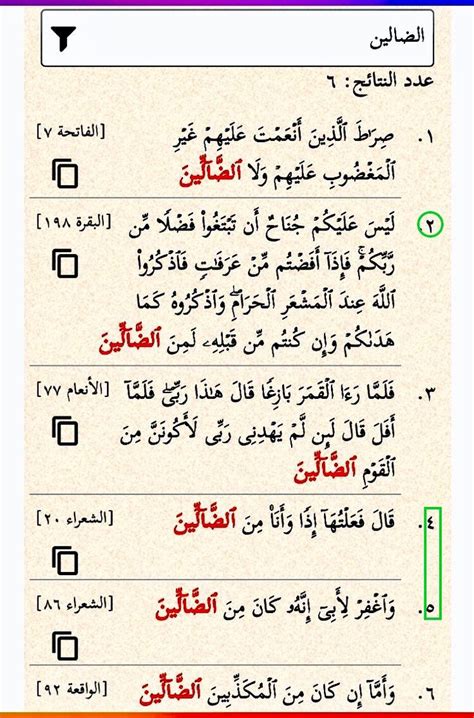 الضالين
عدد النتائج: ٦
١. صِرَٰطَ ٱلَّذِينَ أَنْعَمْتَ عَلَيْهِمْ غَيْرِ [الفاتحة ٧]
ٱلْمَغْضُوبِ عَلَيْهِمْ وَلَا ٱلضَّآلِّينَ
٢. لَيْسَ عَلَيْكُمْ جُنَاحٌ أَن تَبْتَغُوا۟ فَضْلًا مِّن [البقرة ١٩٨]
رَّبِّكُمْ ۚ فَإِذَآ أَفَضْتُم مِّنْ عَرَفَٰتٍ فَٱذْكُرُوا۟
ٱللَّهَ عِندَ ٱلْمَشْعَرِ ٱلْحَرَامِ ۖ وَٱذْكُرُوهُ كَمَا
هَدَىٰكُمْ وَإِن كُنتُم مِّن قَبْلِهِۦ لَمِنَ ٱلضَّآلِّينَ
٣. فَلَمَّا رَءَا ٱلْقَمَرَ بَازِغًا قَالَ هَٰذَا رَبِّى ۖ فَلَمَّآ [الأنعام ٧٧]
أَفَلَ قَالَ لَئِن لَّمْ يَهْدِنِى رَبِّى لَأَكُونَنَّ مِنَ
ٱلْقَوْمِ ٱلضَّآلِّينَ
٤. قَالَ فَعَلْتُهَآ إِذًا وَأَنَا۠ مِنَ ٱلضَّآلِّينَ [الشعراء ٢٠]
٥. وَٱغْفِرْ لِأَبِىٓ إِنَّهُۥ كَانَ مِنَ ٱلضَّآلِّينَ [الشعراء ٨٦]
٦. وَأَمَّآ إِن كَانَ مِنَ ٱلْمُكَذِّبِينَ ٱلضَّآلِّينَ [الواقعة ٩٢]